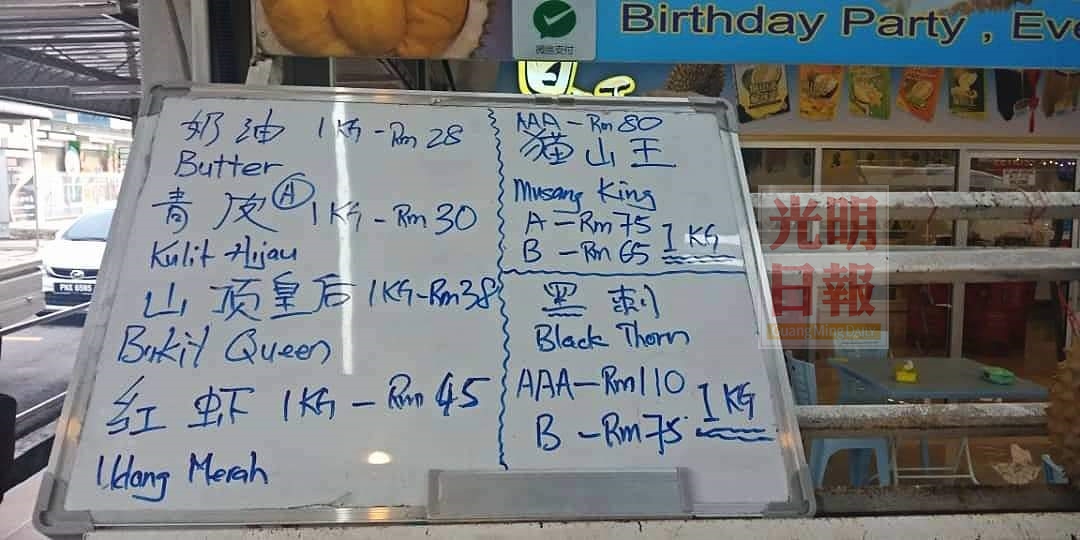 微信支付
Birthday Party , Eve
奶油 1KG - Rm 28
Butter
青皮 A 1KG - Rm 30
Kulit Hijau
山顶皇后 1KG-Rm38
Bukit Queen
红虾 1KG - Rm 45
Udang Merah
AAA - Rm 80
猫山王
Musang King
A - Rm 75
B - Rm 65 1 KG
黑刺
Black Thorn
AAA - Rm 110
B - Rm 75 1 KG
光明
日報
Guang Ming Daily